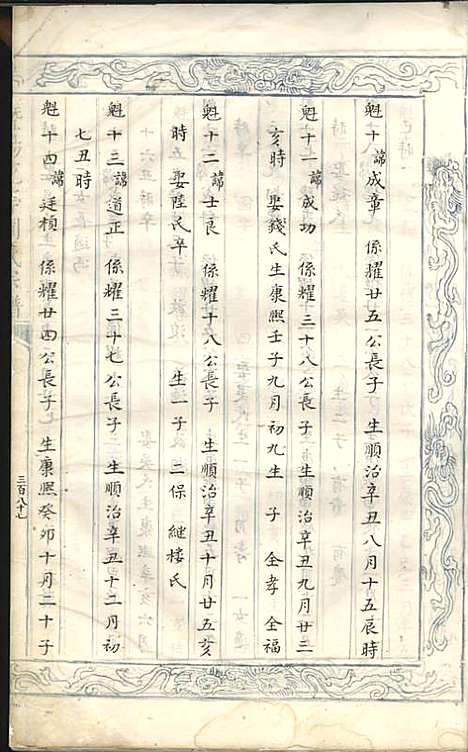 魁十 諱成章 係耀廿五公長子 生順治辛丑八月十五辰時
魁十一諱成功 係耀三十八公長子生順治辛丑九月廿三
亥時 娶錢氏生康熙壬子九月初九生 子 全孝 全福
魁十二諱士良 係耀十八公長子 生順治辛丑十月廿五亥
時 娶陸氏卒 生一子 二保 繼楼氏
魁十三諱道正 係耀三十七公長子 生順治辛丑十二月初
七丑時
魁十四諱廷楨 係耀廿四公長子 生康熙癸卯十月二十子
三百八十七